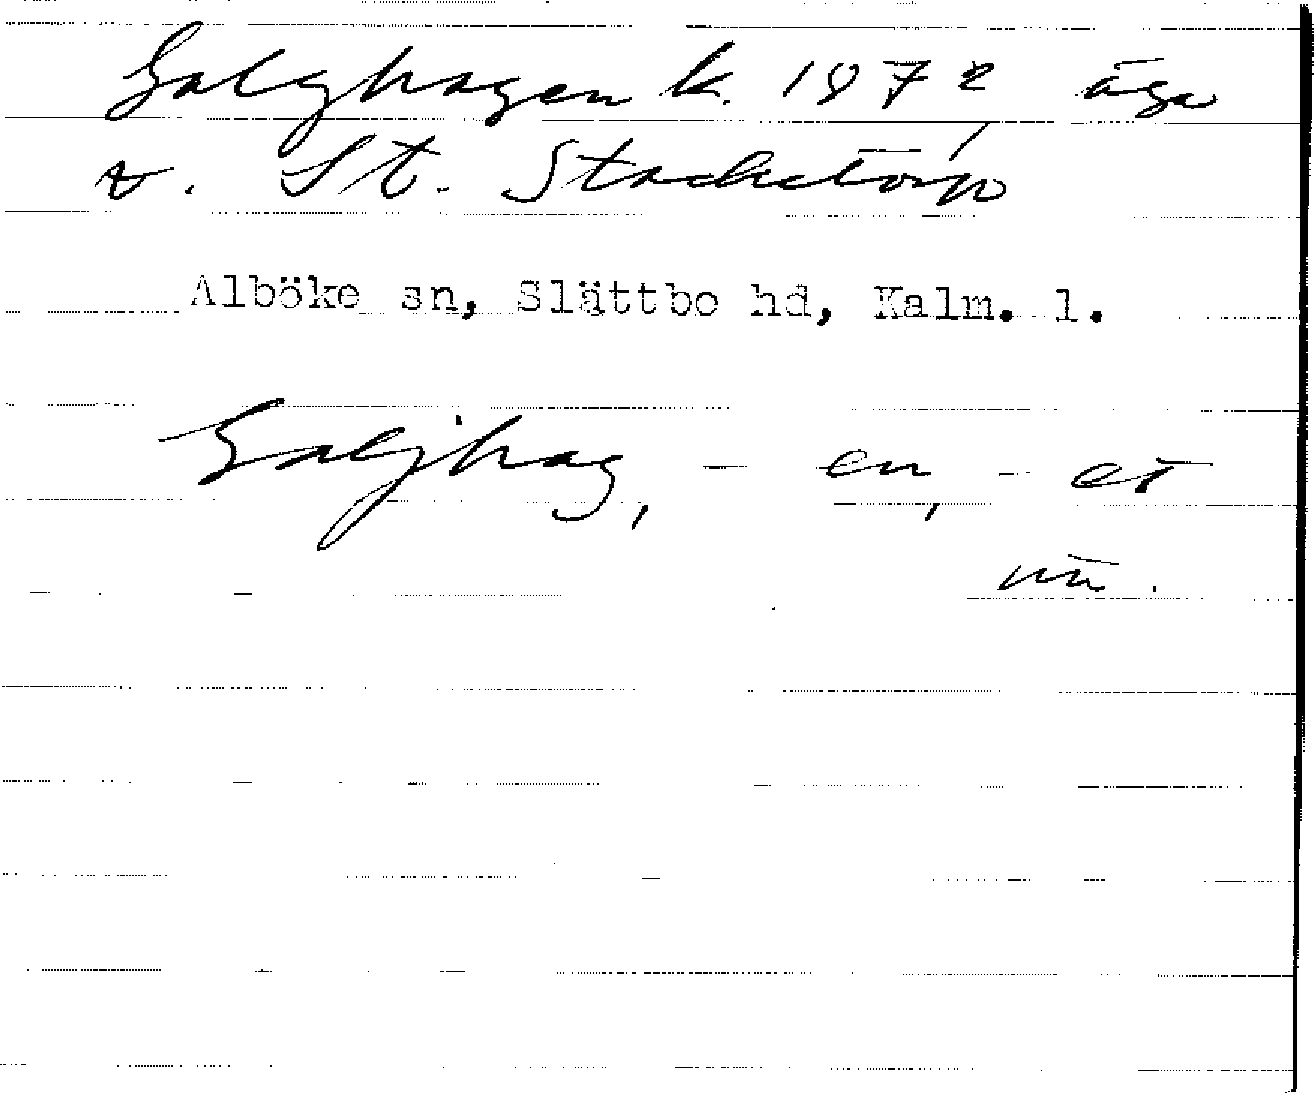 Galghagen k. 1872 äga
v. St. Stacketorp
Alböke sn, Slättbo hd, Kalm. l.
Galjhag, - en, - et
un.